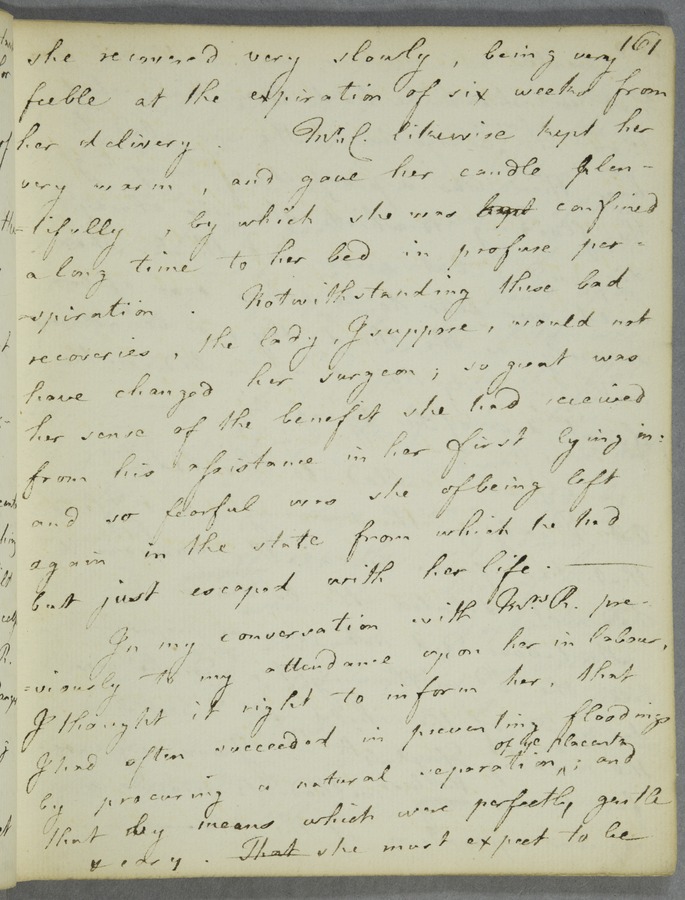 161
she recovered very slowly, being very
feeble at the expiration of six weeks from
her delivery. Mr. C. likewise kept her
very warm, and gave her caudle plen-
tifully, by which she was kept confined
a long time to her bed in profuse per-
-spiration. Notwithstanding these bad
recoveries, the lady, I suppose, would not
have changed her surgeon; so great was
her sense of the benefit she had received
from his assistance in her first lying in:
and so fearful was she of being left
again in the state from which he had
but just escaped with her life. —
In my conversation with Mrs. R. pre-
-viously to my attendance upon her in labour,
I thought it right to inform her, that
I had often succeeded in preventing floodings
by procuring a natural separation of ye placenta; and
that by means which were perfectly gentle
& easy. That she must expect to be